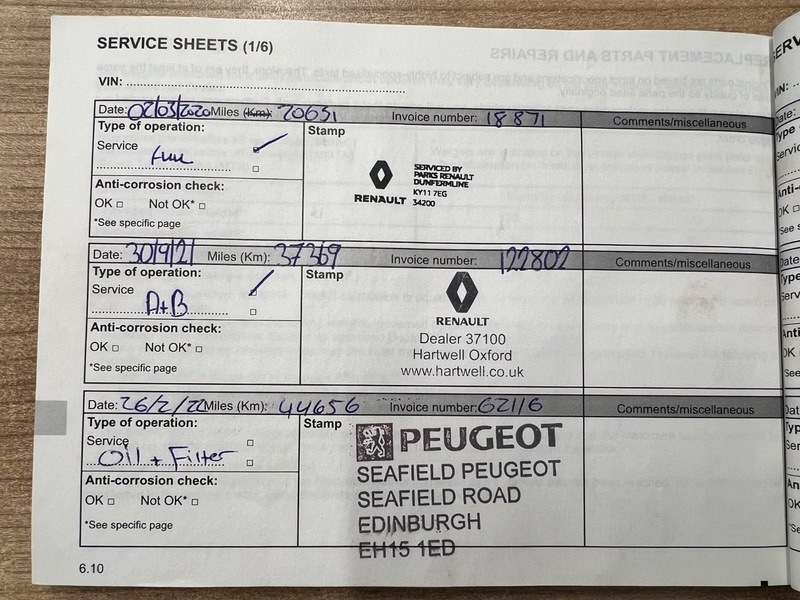 SERVICE SHEETS (1/6)
VIN:
Date: 02/03/2020 Miles (Km): 20631 Invoice number: 18871 Comments/miscellaneous
Type of operation:
Stamp
Service
Full
SERVICED BY
PARKS RENAULT
DUNFERMLINE
KY11 7EG
34200
RENAULT
Anti-corrosion check:
OK □ Not OK* □
*See specific page
Date: 30/9/21 Miles (Km): 37369 Invoice number: 122802 Comments/miscellaneous
Type of operation:
Stamp
Service
A+B
RENAULT
Dealer 37100
Hartwell Oxford
www.hartwell.co.uk
Anti-corrosion check:
OK □ Not OK* □
*See specific page
Date: 26/2/22 Miles (Km): 44656 Invoice number: 62116 Comments/miscellaneous
Type of operation:
Stamp
Service
Oil + Filter
PEUGEOT
SEAFIELD PEUGEOT
SEAFIELD ROAD
EDINBURGH
EH15 1ED
Anti-corrosion check:
OK □ Not OK* □
*See specific page
6.10